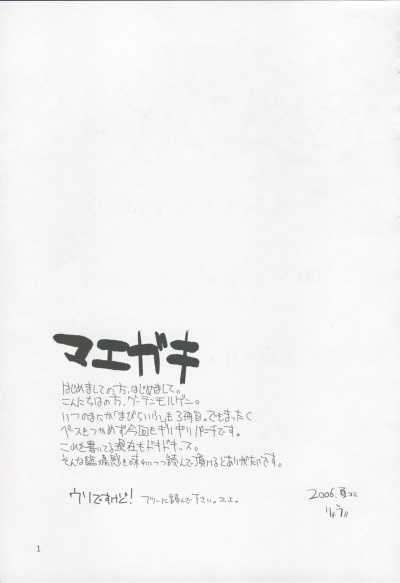 マエガキ
はじめましての方、はじめまして。
こんにちはの方、グーテンモルゲン。
いつのまにか「まびらいふ」も3冊目。でもまったく
ペースもつかめず今回もギリギリパンチです。
これを書いてる現在もドキドキっス。
そんな臨場感も味わいつつ読んで頂けるとありがたいです。
ウリですけど! フリーに読んで下さい。
2006. 夏コミ
りょう
1